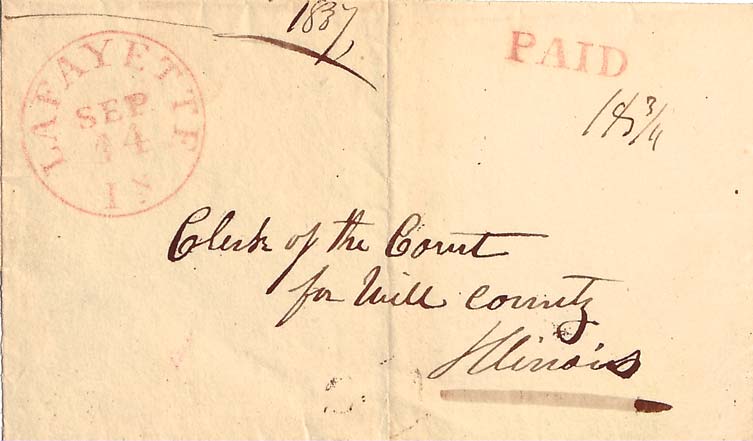 1837
LAFAYETTE
SEP
14
IN
PAID
18 3/4
Clerk of the Court
for Will County
Illinois